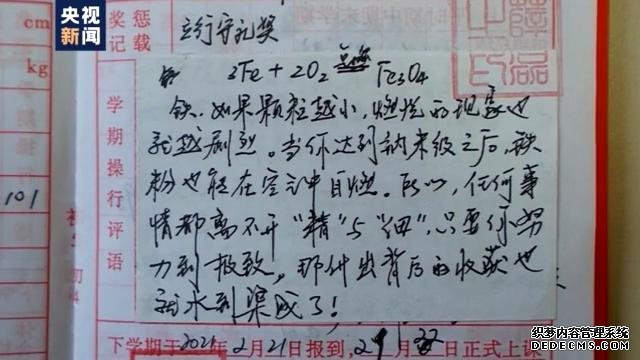 央视新闻
cm
kg
101
奖惩记载
立行守礼奖
学期操行评语
3Fe + 2O₂ 点燃 Fe₃O₄
铁.如果颗粒越小,燃烧的现象也
就越剧烈。当你达到纳米级之后,铁
粉也能在空气中自燃。所以,任何事
情都离不开“精”与“细”,只要你努
力到极致,那付出背后的收获也
就水到渠成了!
下学期于2021年2月21日报到,2月 日正式上课
装修世界网
http://www.zswcn.com